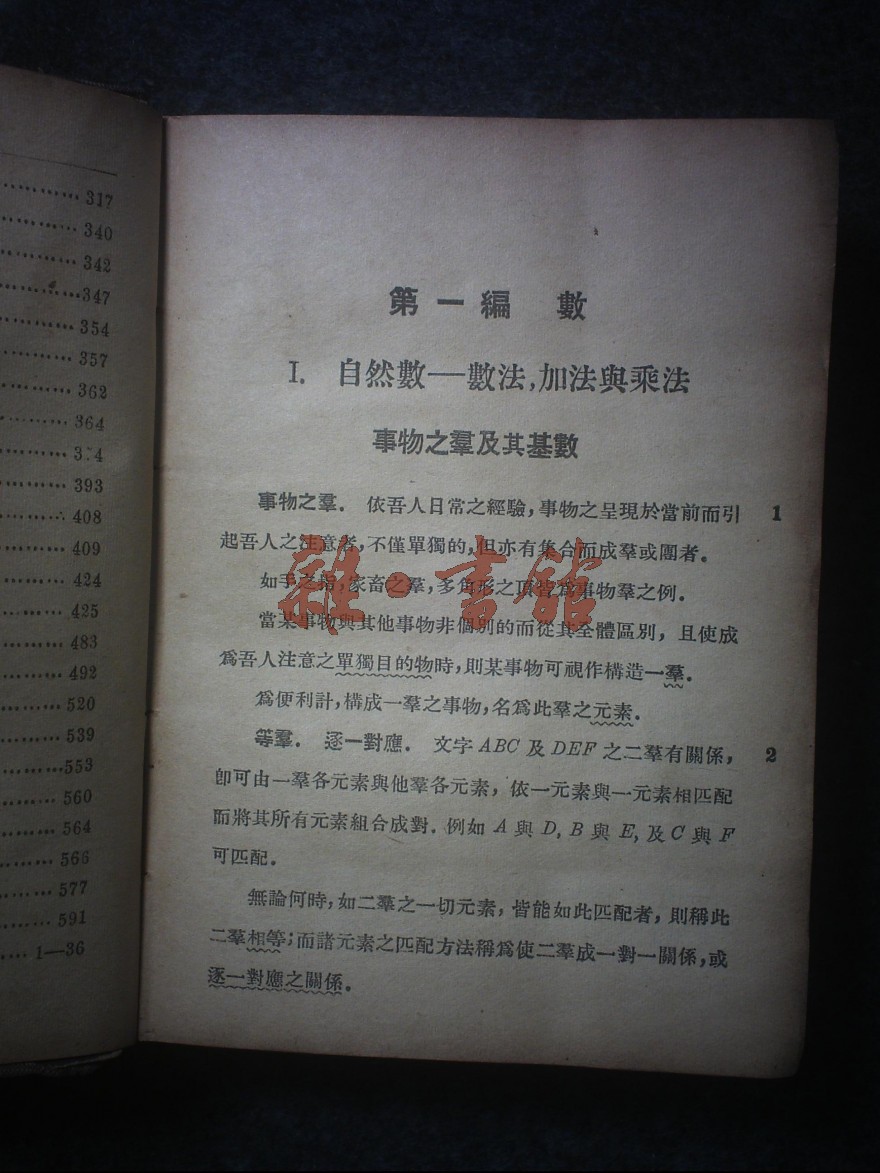 317
340
342
347
354
357
362
364
393
408
409
424
425
483
492
520
539
553
560
564
566
577
591
1—36
第一編 數
I. 自然數——數法,加法與乘法
事物之羣及其基數
事物之羣. 依吾人日常之經驗,事物之呈現於當前而引 1
起吾人之注意者,不僅單獨的,但亦有集合而成羣或團者.
如手之指,家畜之羣,多角形之頂皆爲事物羣之例.
當某事物與其他事物非個別的而從其全體區別, 且使成
爲吾人注意之單獨目的物時,則某事物可視作構造一羣.
爲便利計,構成一羣之事物,名爲此羣之元素.
等羣. 逐一對應. 文字 ABC 及 DEF 之二羣有關係, 2
卽可由一羣各元素與他羣各元素, 依一元素與一元素相匹配
而將其所有元素組合成對. 例如 A 與 D, B 與 E, 及 C 與 F
可匹配.
無論何時,如二羣之一切元素, 皆能如此匹配者, 則稱此
二羣相等;而諸元素之匹配方法稱爲使二羣成一對一關係,或
逐一對應之關係.
雜·書館